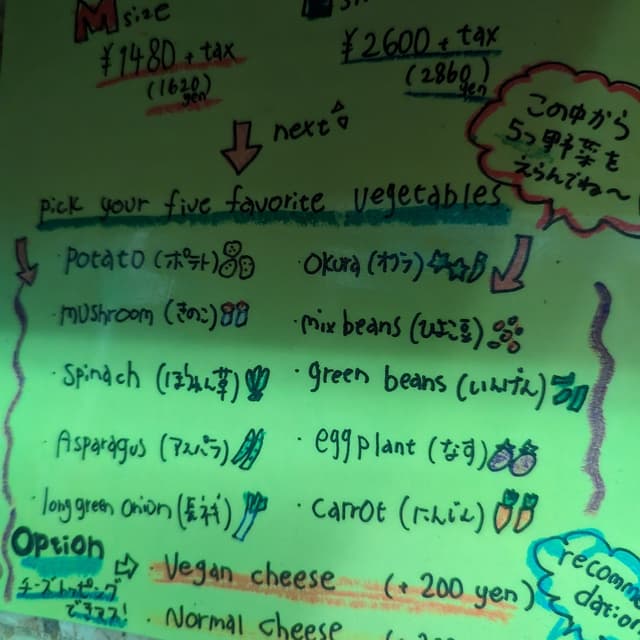 M size
¥1480 + tax
(1620 yen)
¥2600 + tax
(2860 yen)
next
この中から
5つ野菜を
えらんでね〜
pick your five favorite vegetables
・potato (ポテト)
・okura (オクラ)
・mushroom (きのこ)
・mix beans (ひよこ豆)
・spinach (ほうれん草)
・green beans (いんげん)
・Asparagus (アスパラ)
・eggplant (なす)
・long green onion (長ネギ)
・carrot (にんじん)
Option
チーズトッピング
できます!
Vegan cheese (+ 200 yen)
・Normal cheese